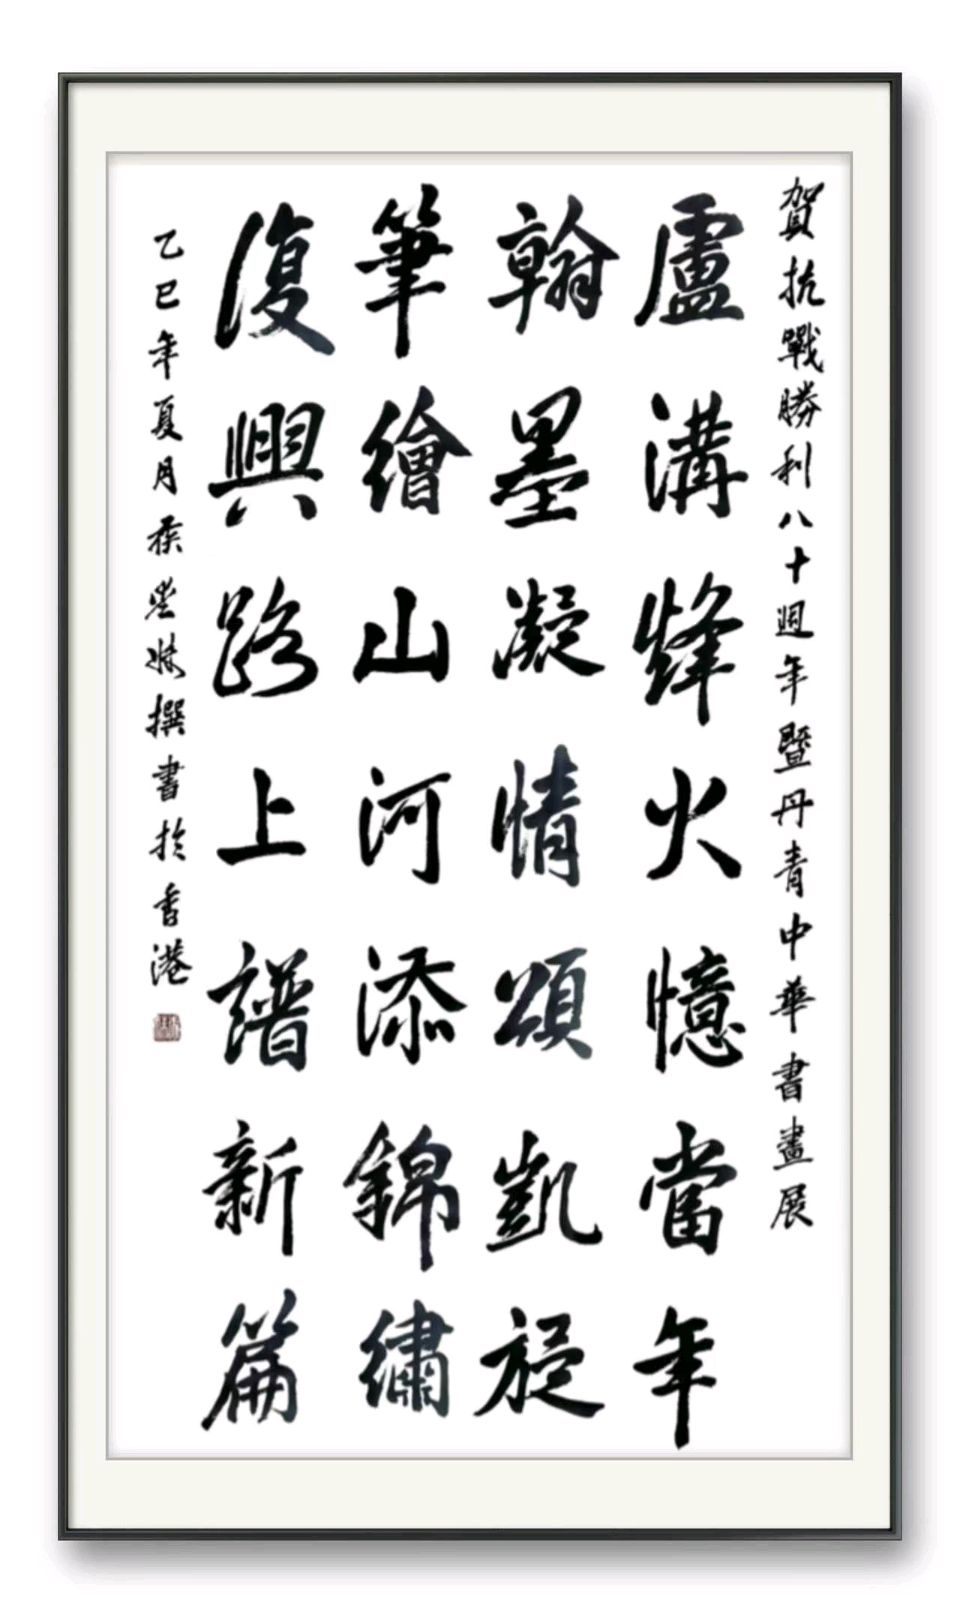 賀抗戰勝利八十週年暨丹青中華書畫展
盧溝烽火憶當年
翰墨凝情頌凱旋
筆繪山河添錦繡
復興路上譜新篇
乙巳年夏月 撰書於香港